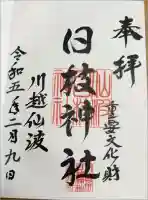 奉拝
重要文化財
日枝神社
川越仙波
令和五年二月九日